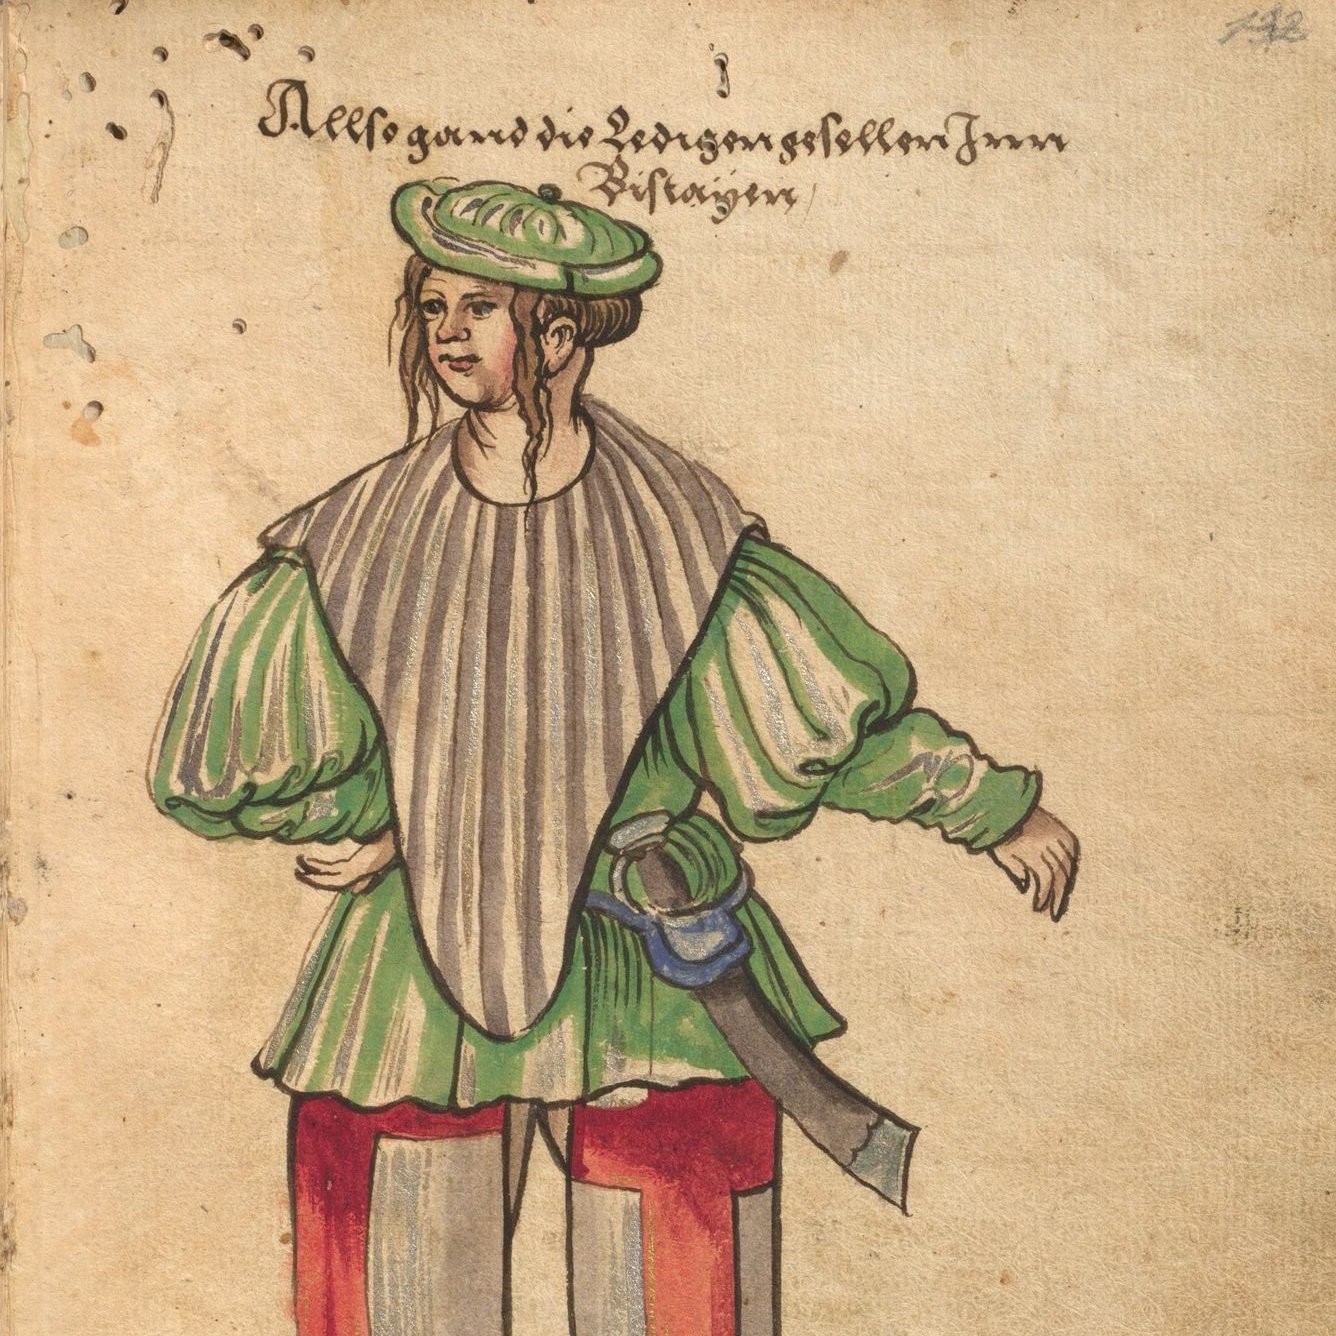 132
Allso gand die Ledigen gesellen Inn
Biscayen